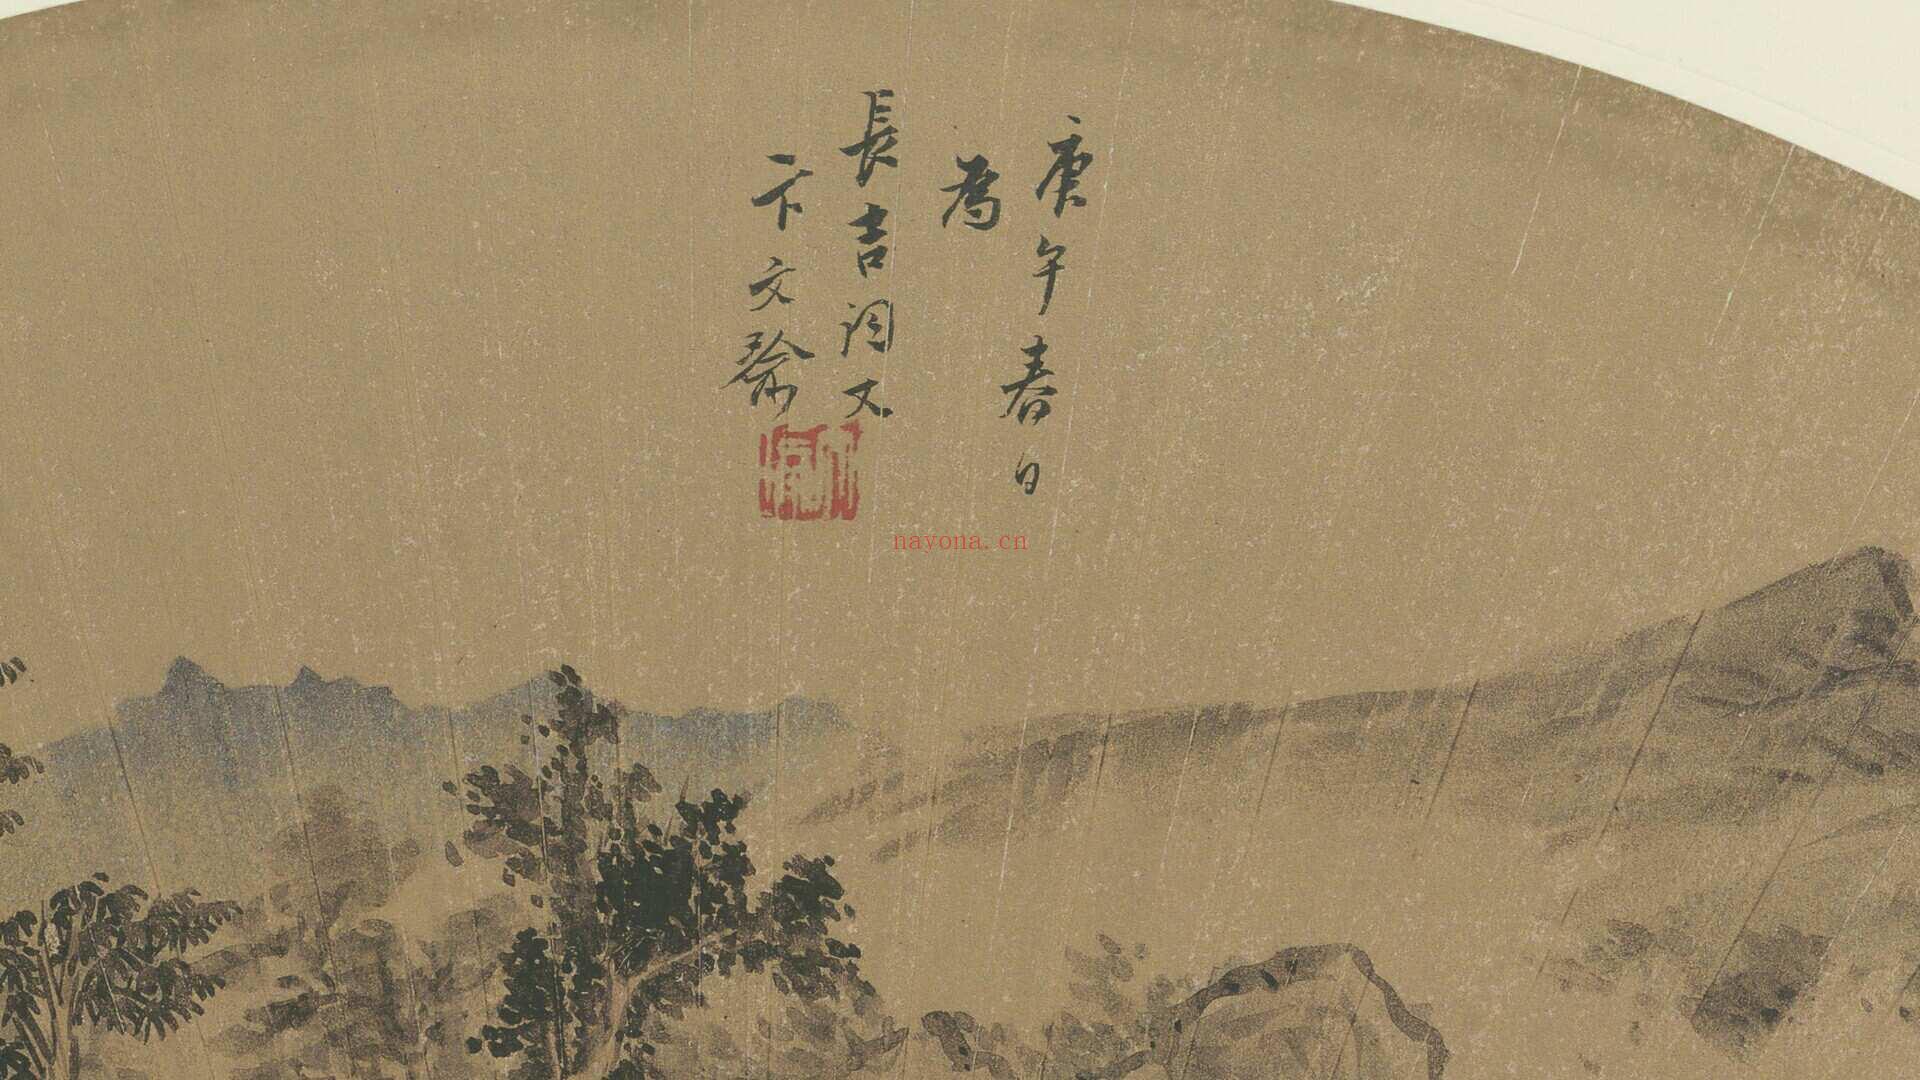 庚午春日
為
長吉詞丈
卞文瑜
nayona.cn